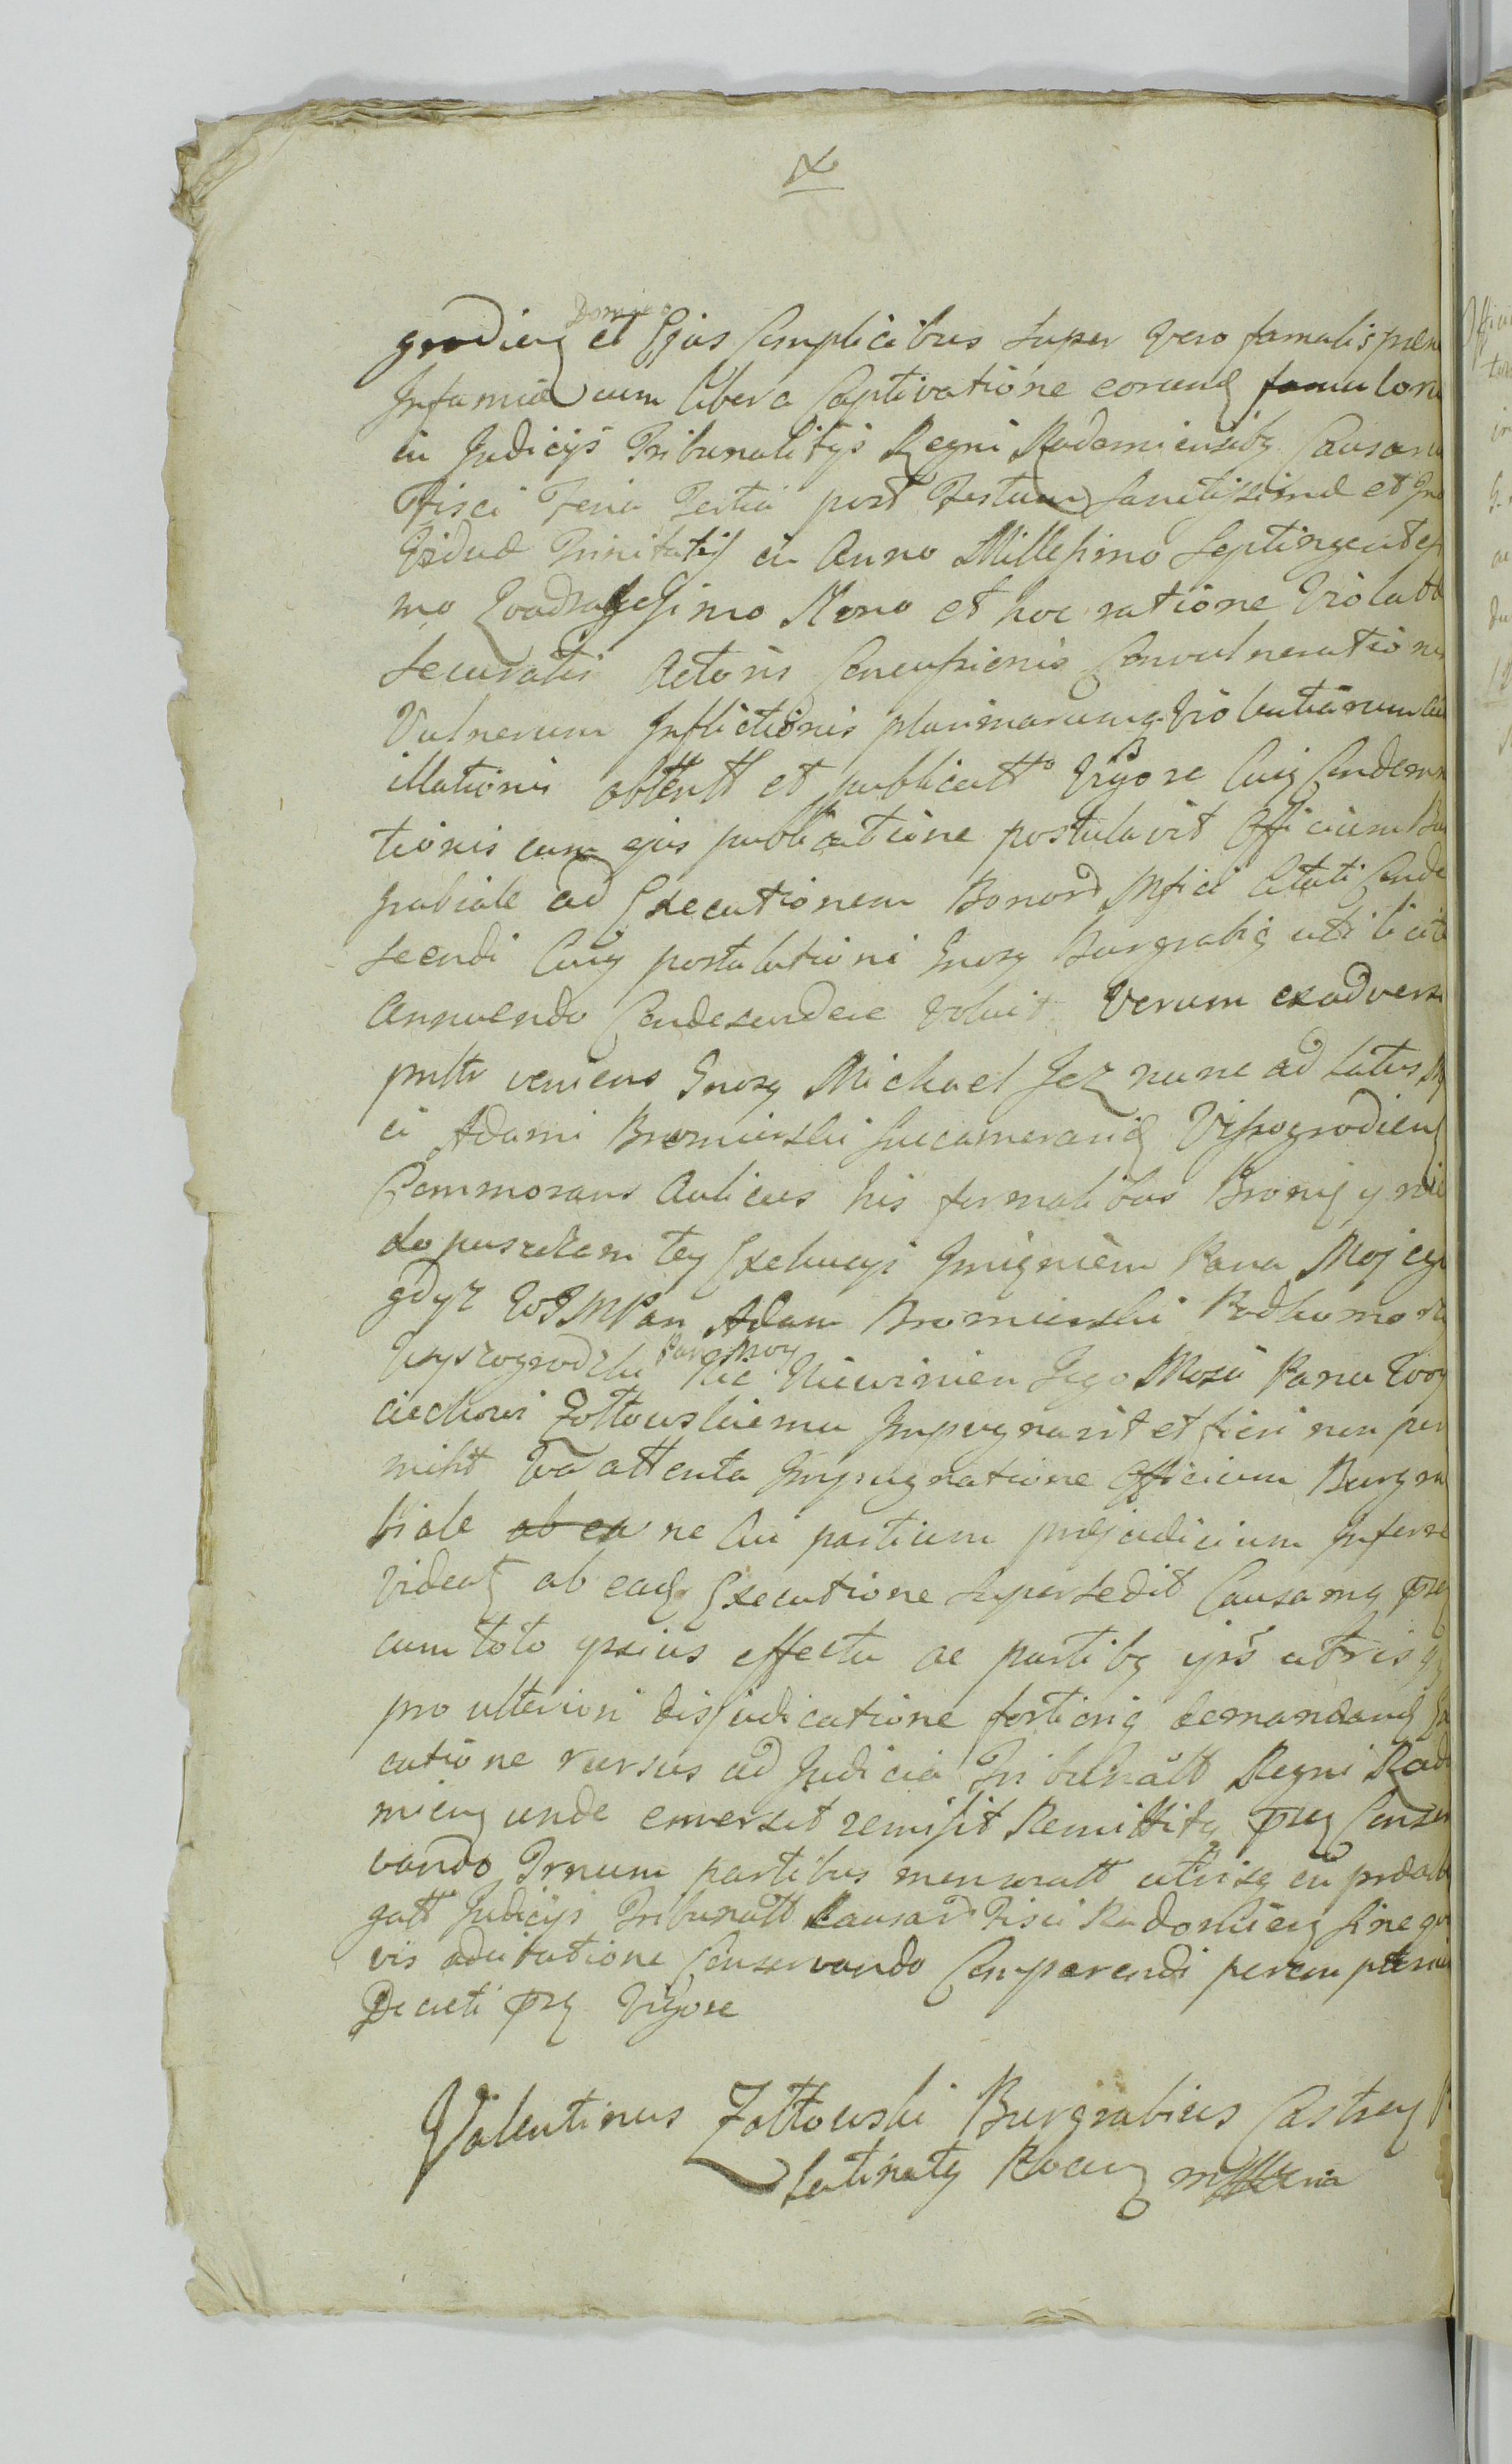 Domino
grodien et Ejus Complicibus super vero famulis pæn
Infamiæ cum libera Captivatione eorund famuloru
in Judicijs Tribunalitijs Regni Radomiensibq Causaru
Fisci Feria Tertia post Festum Sanctissimæ et In
viduæ Trinitatis in Anno Millesimo Septingentesi
mo Quadragesimo Nono et hoc ratione Violatæ
securitatis Actoris Concussionis Convulnerationis
Vulnerum Inflictionis plurimarumq Violentiarum
illationis obtentt et publicatt Vigore Cuiq Condemna
tionis cum ejus publicatione postulavit Officium Bur
grabiale ad Executionem Bonorū Mfici Citati Conde
scendi Cuiq postulationi Gnosq Burgrabiq uti licita
Annuendo Condescendere voluit Verum ex adverso
prtte veniens Gnosq Michael Jez nunc ad Latus M
ci Adami Bromierski Succamerarij Vissogrodien
Commorans Aulicus his formalibus Bronię y nie
dopuszczam tey Exekucyi Imieniem Pana Mojego
gdyz WJMPan Adam Bromierski Podkomorzy
Wyszogrodzki Pan Moy Nic Niewinien Jego Mości Panu Woy
ciechowi Zołtowskiemu Impugnavit et fieri non per
misit Qva attenta Impugnatione Officium Burgra
biale ab ea ne Cui partium præjudicium Inferre
videat ab ead Executione supersedit Causamq præ
cum toto ipsius effectu ac partibq ipsis utrisq
pro ulteriori disjudicatione fortioriq demandand Exe
cutione rursus ad Judicia Tribunalt Regni Rado
mien unde emersit remisit Remittitq præ Conser
vando Trnum partibus memoratt utrisq in præ
gatt Judicijs Tribunalt Causarū Fisci Radomien sine qua
vis adcitatione Conservando Comparendi peremptoriū
Decreti præ Vigore
Valentinus Zołtowski Burgrabius Castren P
latinatq Rvaen mppria